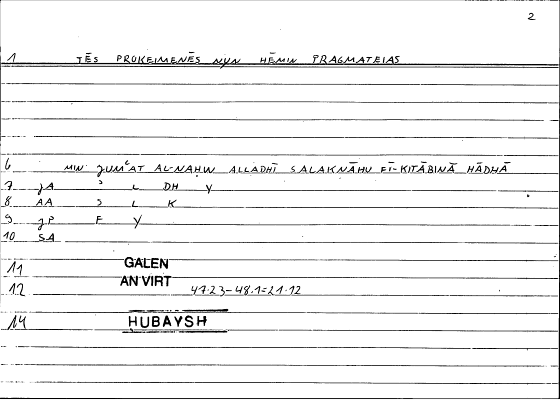 2
1 TĒS PROKEIMENĒS NYN HĒMIN PRAGMATEIAS
6 MIN JUMLAT AL-NAḤW ALLADHĪ SALAKNĀHU FĪ-KITĀBINĀ HĀDHĀ
7 JA ʾ L DH Y
8 AA S L K
9 JP F Y
10 SA
11 GALEN
12 AN VIRT 47.23-48.1=21.12
14 ḤUBAYSH